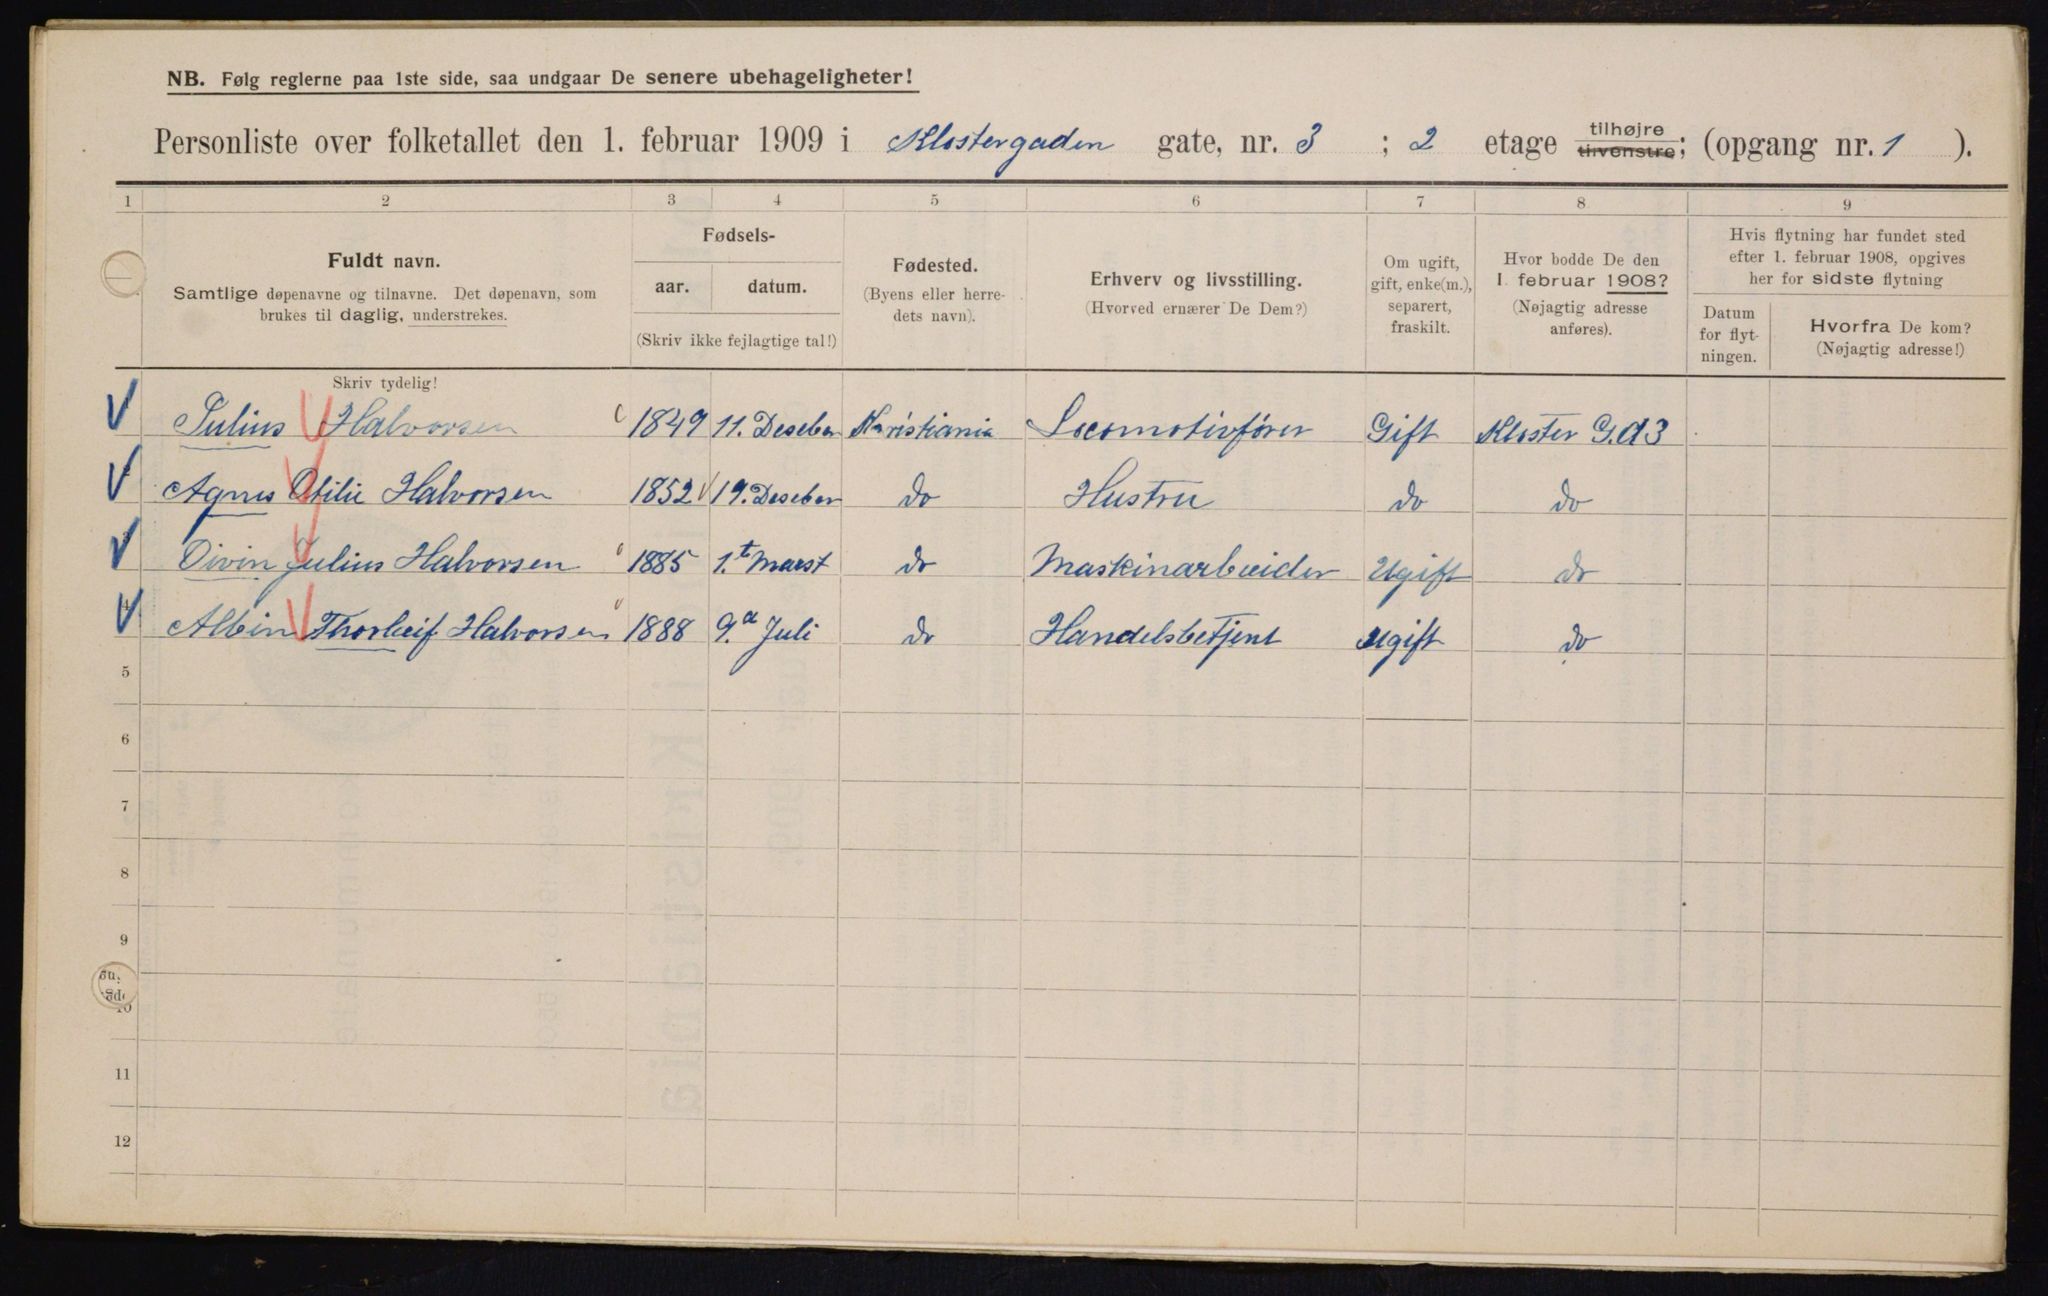 NB. Følg reglerne paa 1ste side, saa undgaar De senere ubehageligheter!
Personliste over folketallet den 1. februar 1909 i Klostergaden gate, nr. 3 ; 2 etage tilhøjre tilvenstre; (opgang nr. 1 ).
1 2 3 4 5 6 7 8 9
Fuldt navn.
Samtlige døpenavne og tilnavne. Det døpenavn, som
brukes til daglig, understrekes.
Skriv tydelig!
Fødsels-
aar. datum.
(Skriv ikke fejlagtige tal!)
Fødested.
(Byens eller herre-
dets navn).
Erhverv og livsstilling.
(Hvorved ernærer De Dem?)
Om ugift,
gift, enke(m.),
separert,
fraskilt.
Hvor bodde De den
1. februar 1908?
(Nøjagtig adresse
anføres).
Hvis flytning har fundet sted
efter 1. februar 1908, opgives
her for sidste flytning
Datum
for flyt-
ningen.
Hvorfra De kom?
(Nøjagtig adresse!)
Julius Halvorsen 1849 11. Deseber Kristiania Locomotivfører Gift Kloster G.d 3
Agnes Otilie Halvorsen 1852 19. Deseber do Hustru do do
3 Oivin Julius Halvorsen 1885 1.t Marst do Maskinarbeider Ugift do
4 Albin Thorleif Halvorsen 1888 9.a Juli do Handelsbetjent Ugift do
5
6
7
8
9
10
11
12